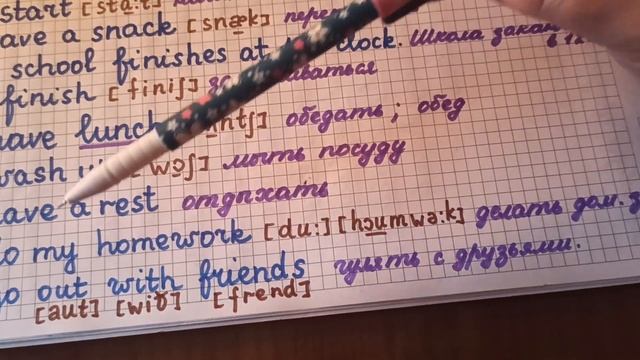 start [sta:t]
ave a snack [snæk]
school finishes at clock. Школа
finish [finiʃ]
have lunch ntʃ] обедать; обед
wash [wɔʃ] мыть посуду
ave a rest отдыхать
o my homework [du:] [hɔumwə:k] делать дом.
o out with friends гулять с друзьями.
[aut] [wið] [frend]